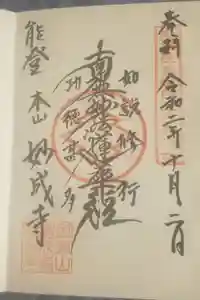 令和二年十月二日
如説修行
南無妙法蓮華経
功徳甚多
能登 本山 妙成寺